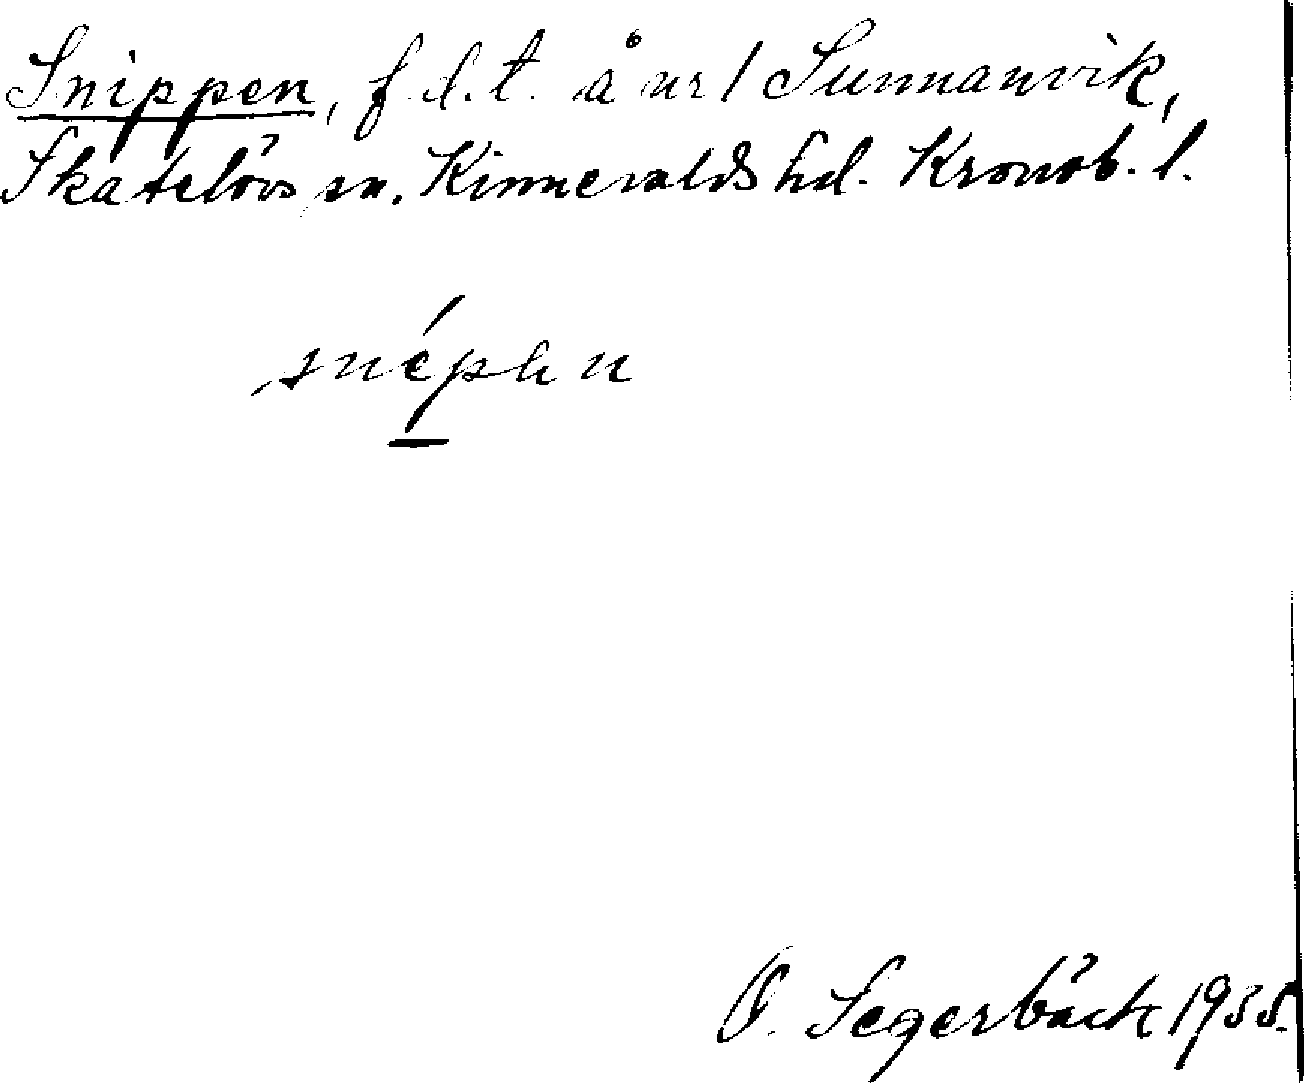 Snippen, f.d.t. å nr 1 Sunnanvik,
Skatelövs sn. Kinnevalds hd. Kronob. l.
O. Segerbäck 1935.